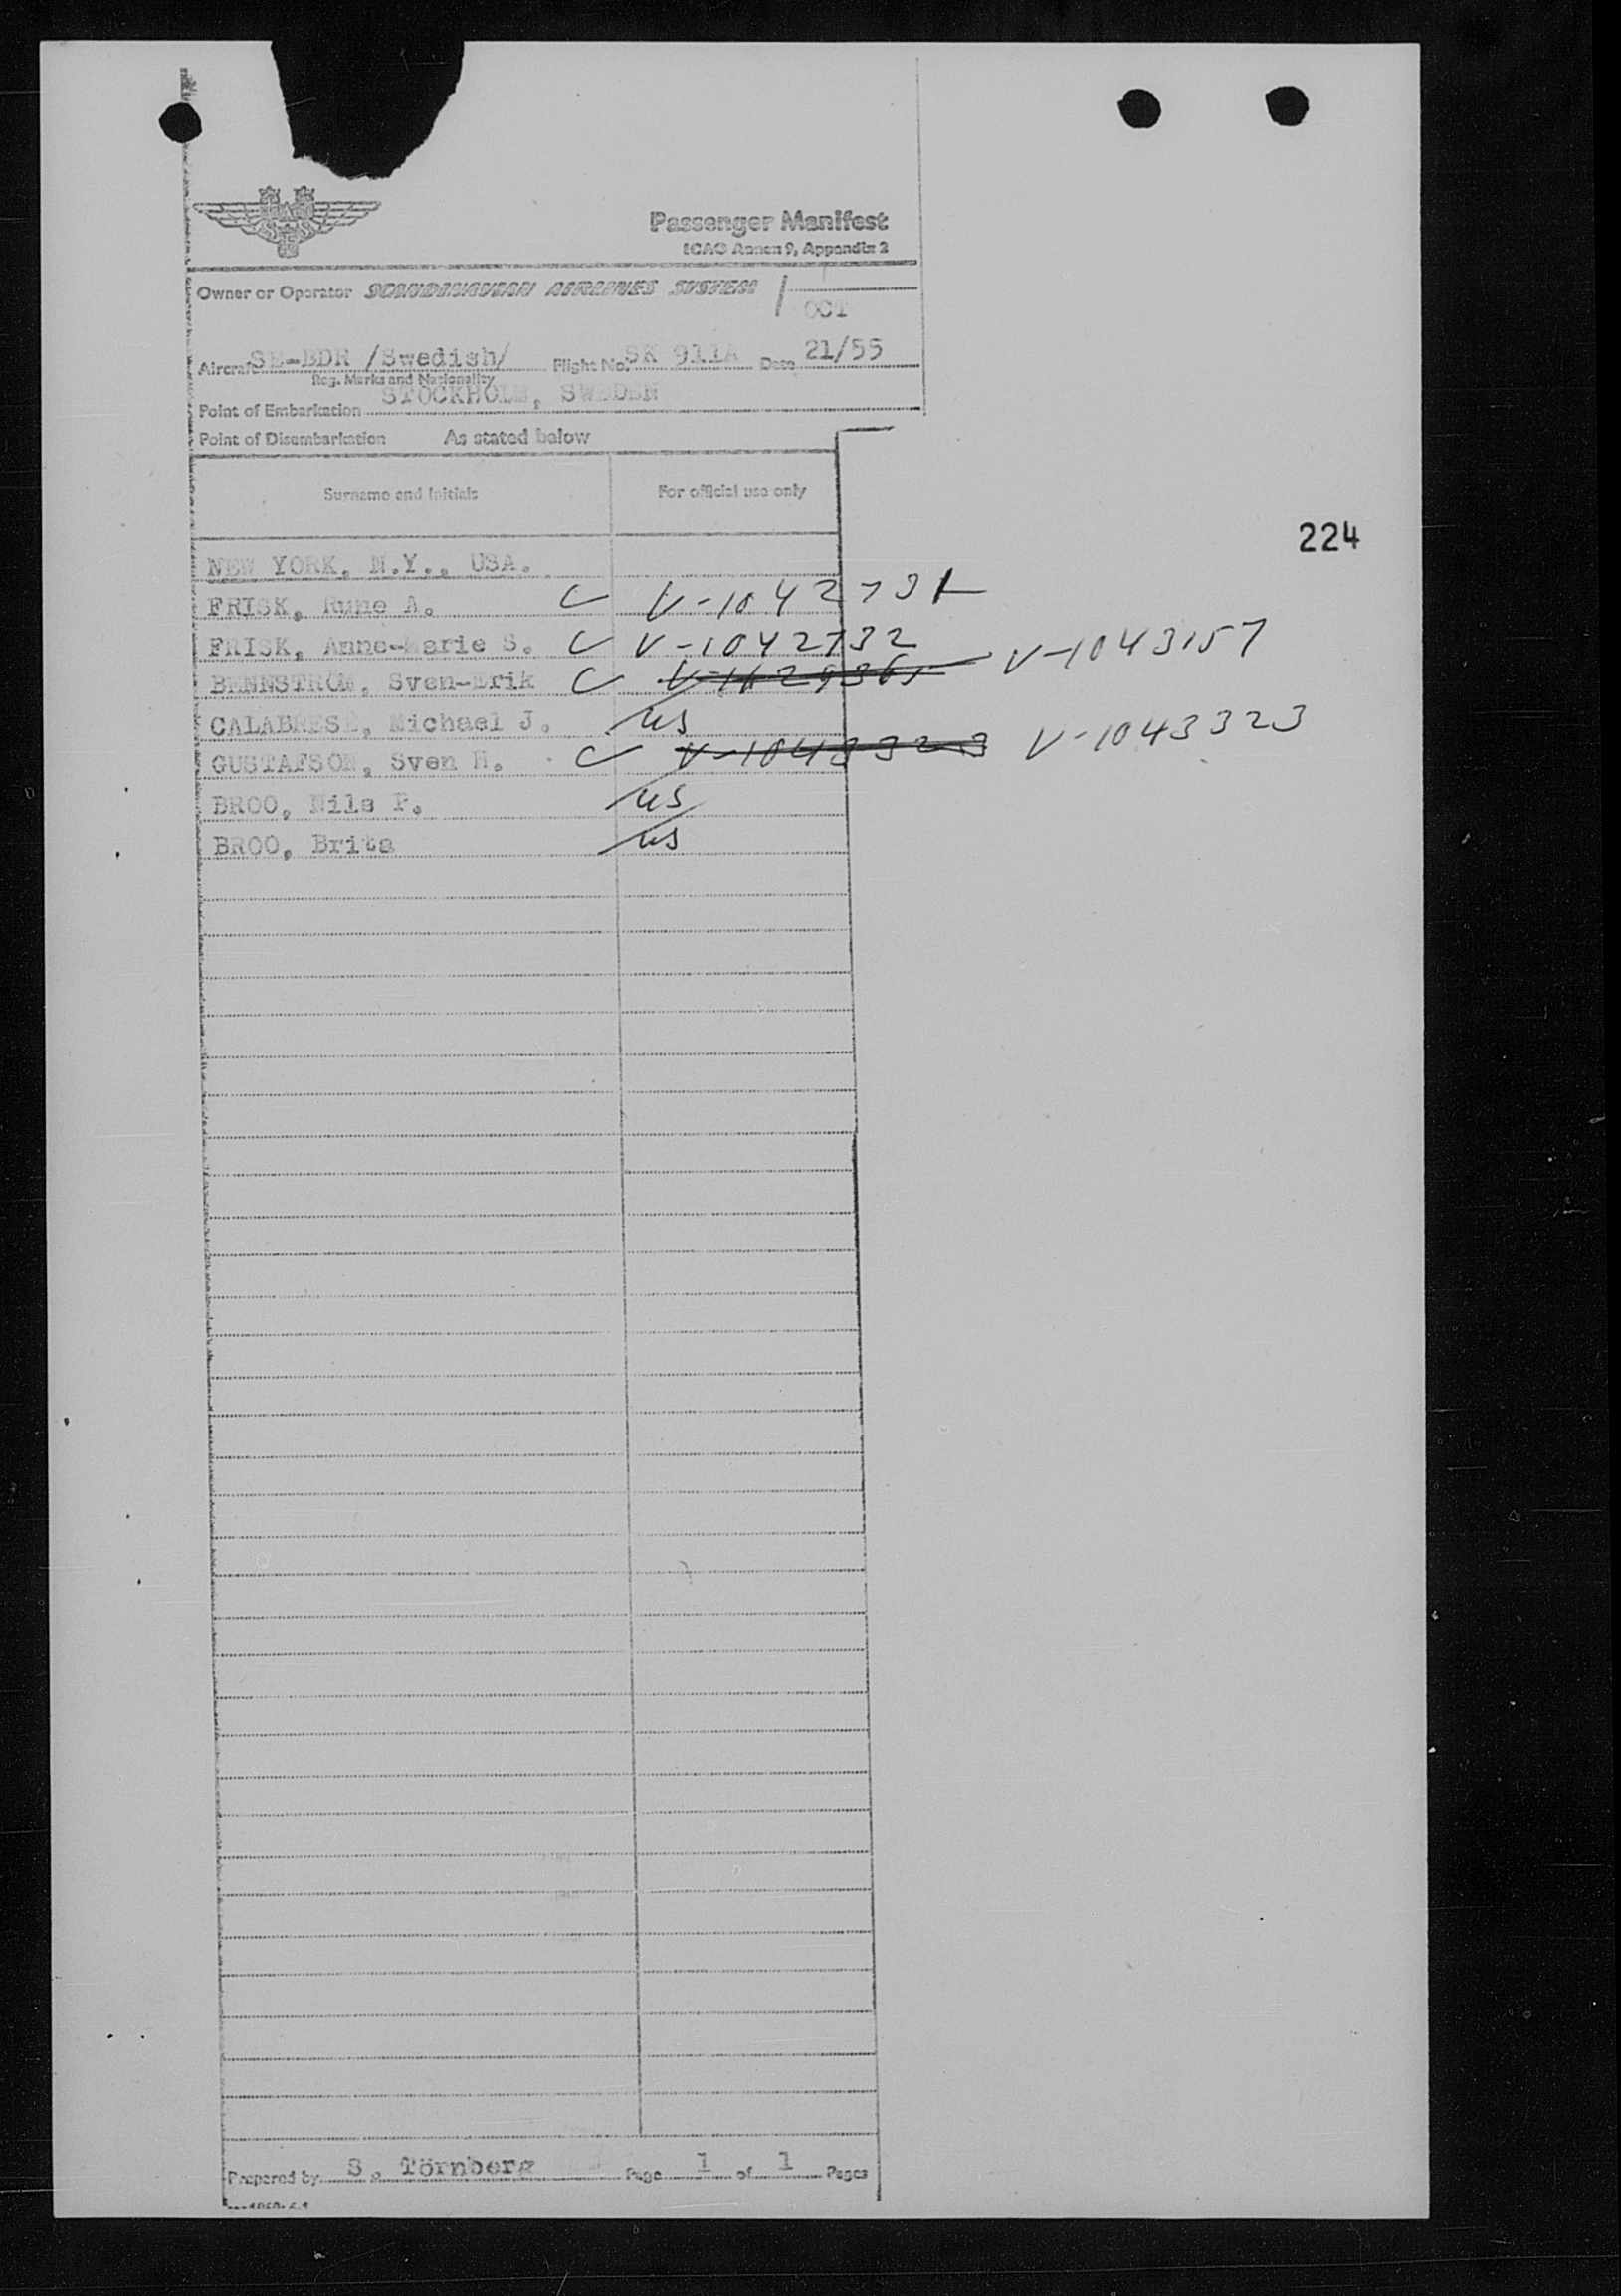 Passenger Manifest
ICAO Annex 9, Appendix 2
Owner or Operator SCANDINAVIAN AIRLINES SYSTEM
OCT
Aircraft SE-BDR /Swedish/ Flight No. SK 911A Date 21/55
Reg. Marks and Nationality
Point of Embarkation STOCKHOLM, SWEDEN
Point of Disembarkation As stated below
Surname and Initials For official use only
224
NEW YORK, N.Y., USA.
FRISK, Rune A. C
FRISK, Anne-Marie S. C V-1042732
BENNSTRÖM, Sven-Erik C V-1043157
CALABRESE, Michael J. US
GUSTAFSON, Sven H. C V-1043323 V-1043323
BROO, Nils P. US
BROO, Brita US
Prepared by S. Törnberg Page 1 of 1 Pages